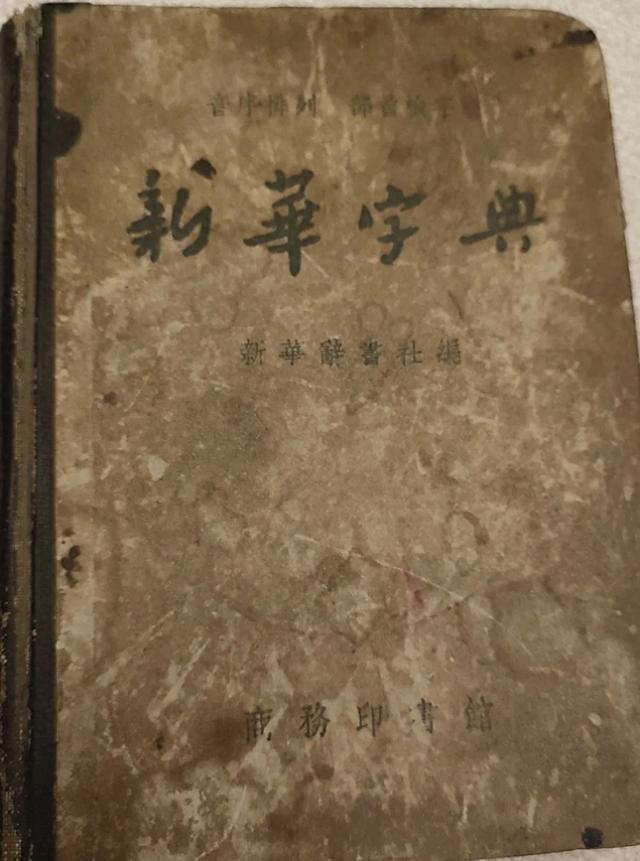 音序排列 部首檢字
新華字典
新華辭書社編
商務印書館